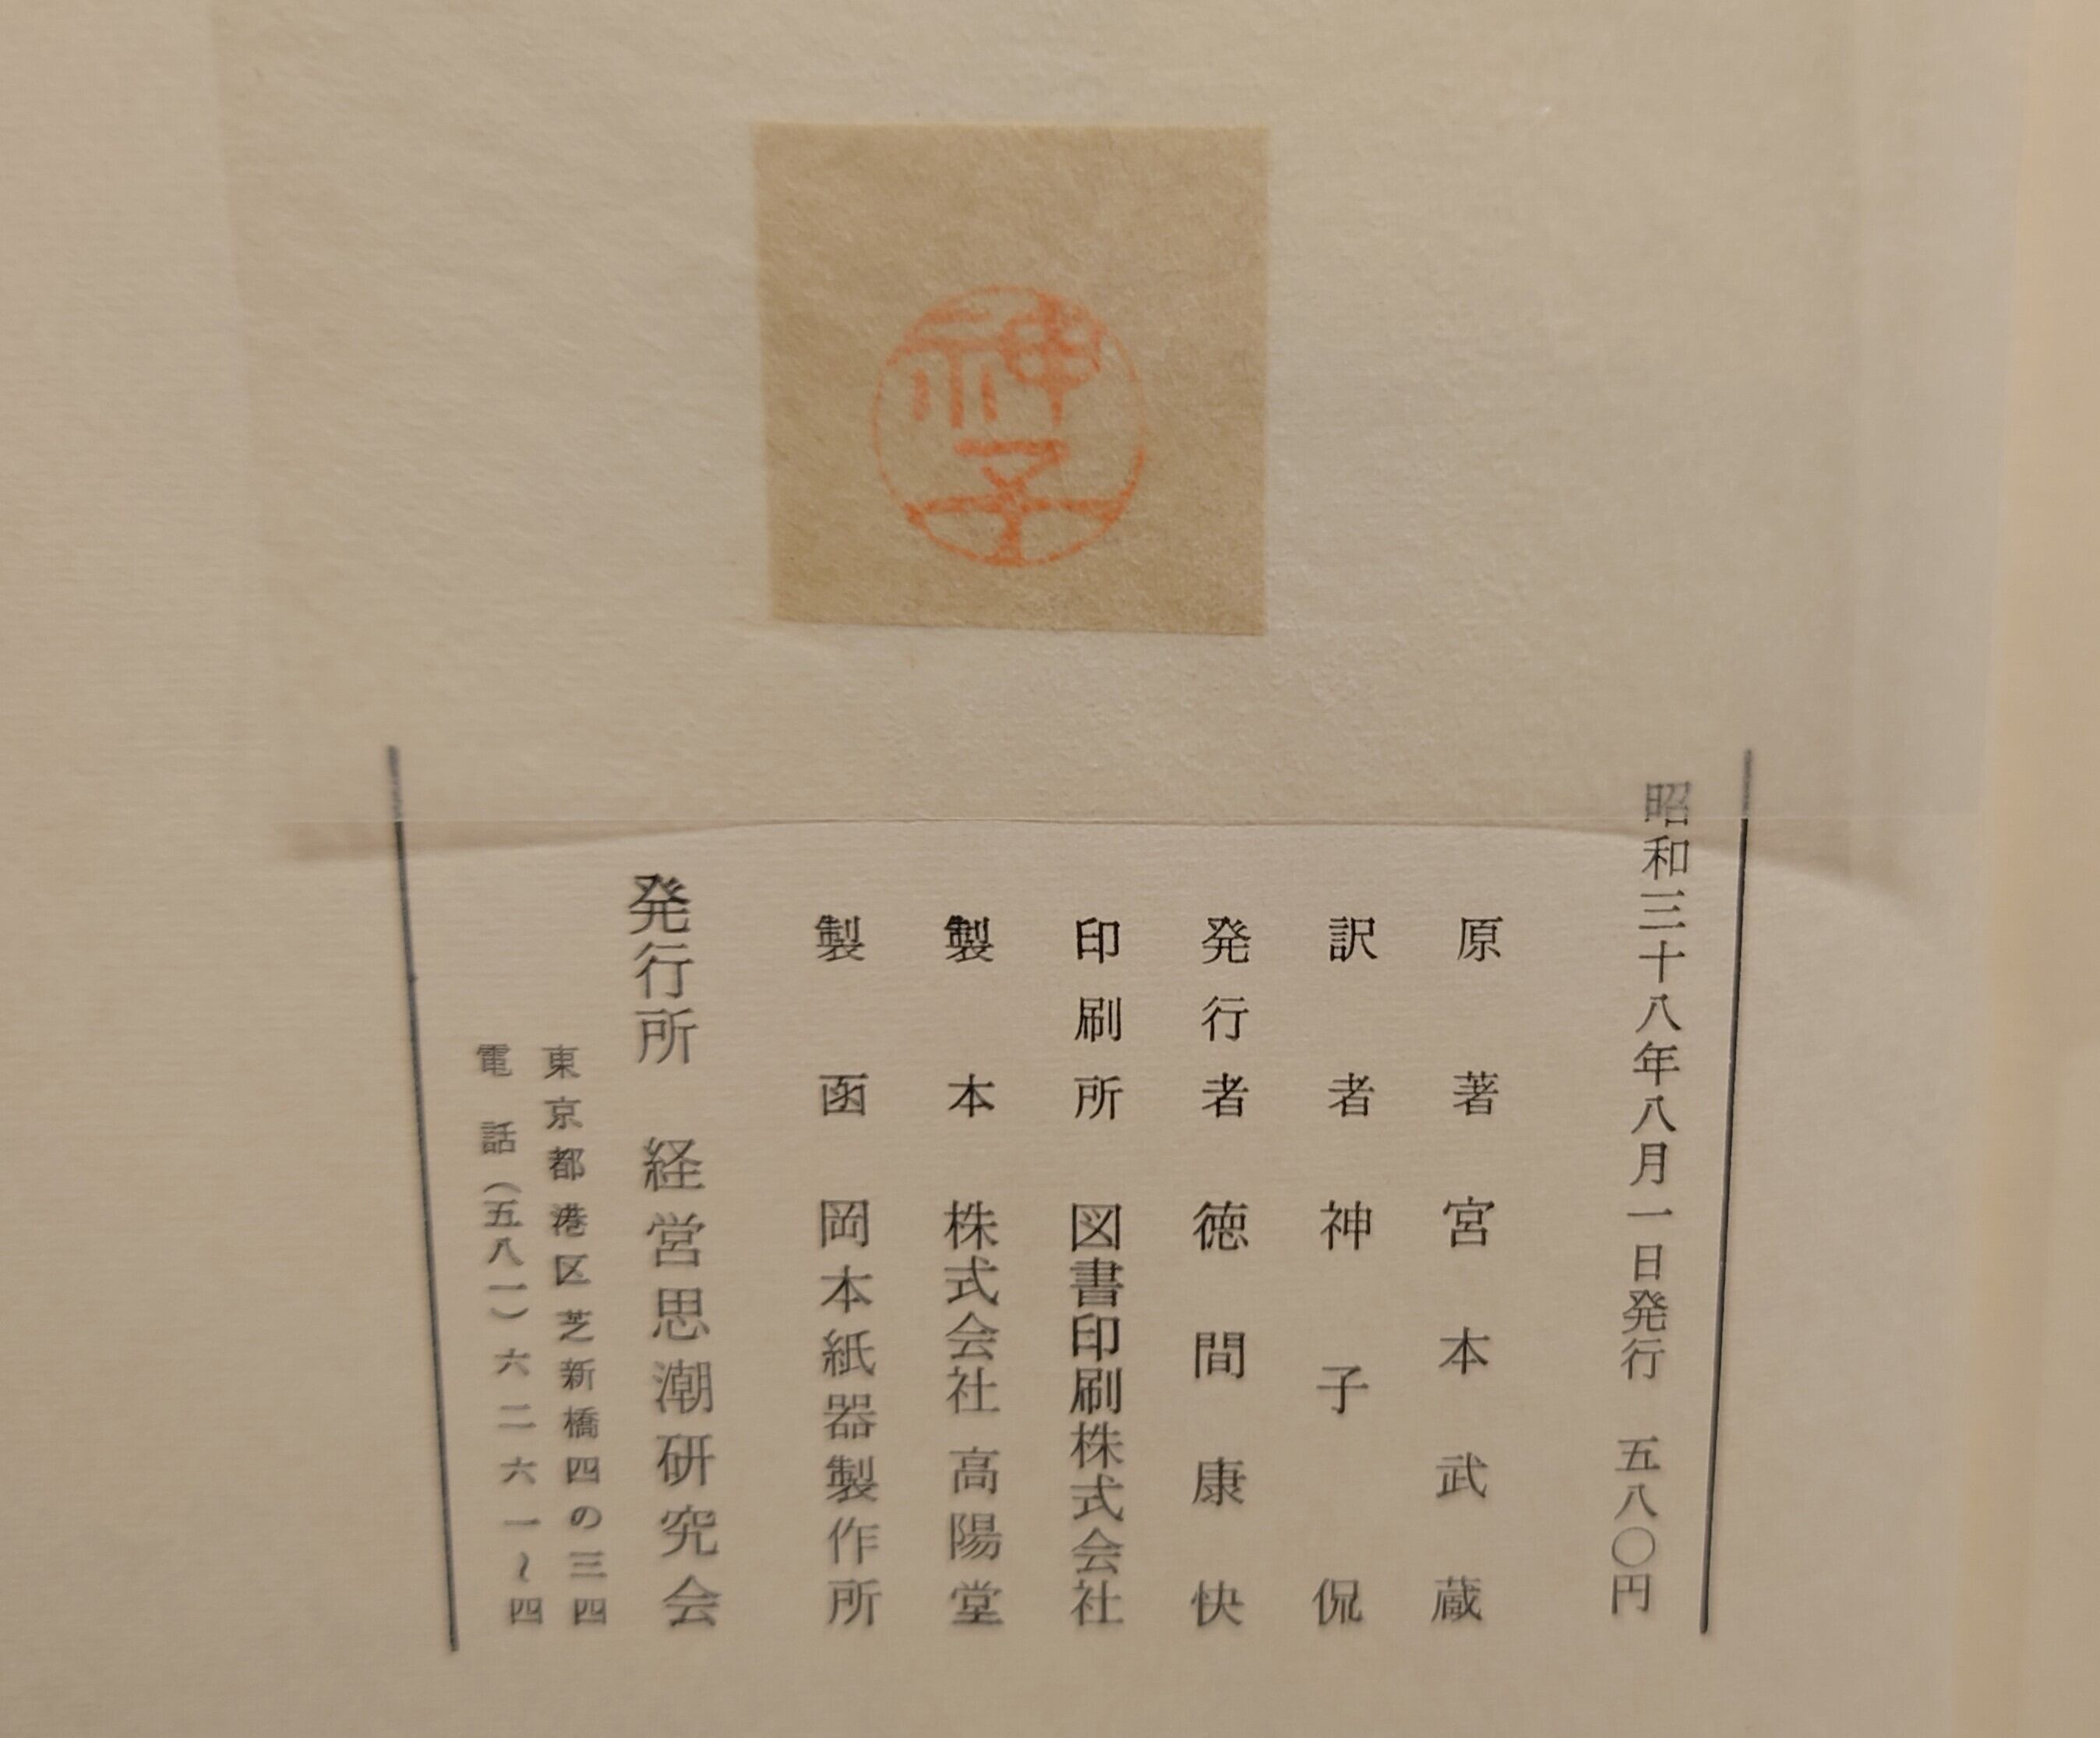 神子
昭和三十八年八月一日発行 五八〇円
原著 宮本武蔵
訳者 神子侃
発行者 徳間康快
印刷所 図書印刷株式会社
製本 株式会社高陽堂
製函 岡本紙器製作所
発行所 経営思潮研究会
東京都港区芝新橋四の三四
電話(五八一)六二六一~四